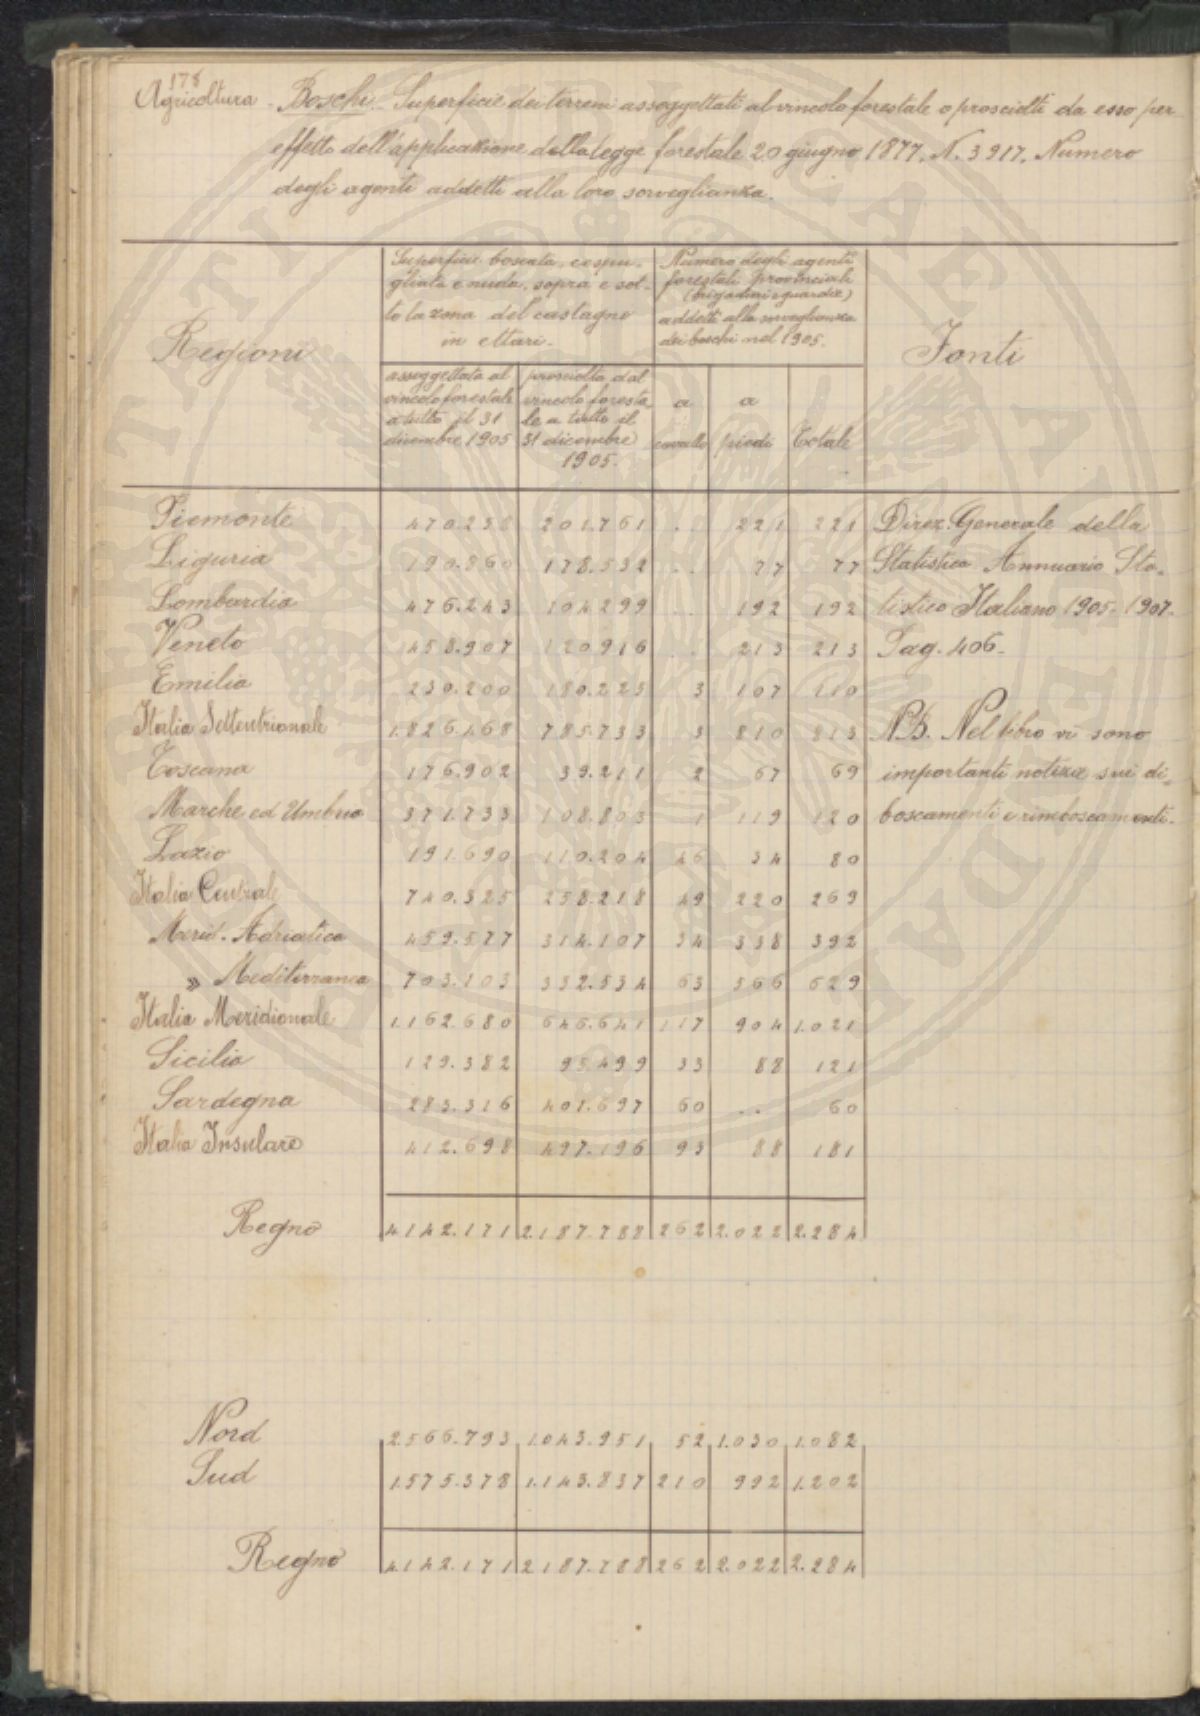 178
Agricoltura - Boschi - Superficie dei terreni assoggettati al vincolo forestale o prosciolti da esso per
effetto dell'applicazione della legge forestale 20 giugno 1877, N. 3917. Numero
degli agenti addetti alla loro sorveglianza.
Regioni
Superficie boscata, cespu-
gliata e nuda, sopra e sot-
to la zona del castagno
in ettari.
Numero degli agenti
forestali provinciali
(brigadieri e guardie)
addetti alla sorveglianza
dei boschi nel 1905.
Fonti
assoggettata al
vincolo forestale
a tutto il 31
dicembre 1905
prosciolta dal
vincolo foresta-
le a tutto il
31 dicembre
1905.
a
cavallo
a
piedi
Totale
Piemonte 470.258 201.761 .. 221 221 Direz. Generale della
Liguria 190.860 178.532 .. 77 77 Statistica Annuario Sta-
Lombardia 476.243 104.299 .. 192 192 tistico Italiano 1905-1907.
Veneto 458.907 120.916 .. 213 213 Pag. 406.
Emilia 230.200 180.225 3 107 110
Italia Settentrionale 1.826.468 785.733 3 810 813 N.B. Nel libro vi sono
Toscana 176.902 39.211 2 67 69 importanti notizie sui di-
Marche ed Umbria 371.733 108.803 1 119 120 boscamenti e rimboscamenti.
Lazio 191.690 110.204 46 34 80
Italia Centrale 740.325 258.218 49 220 269
Merid. Adriatica 459.577 314.107 34 338 392
» Mediterranea 703.103 332.534 63 566 629
Italia Meridionale 1.162.680 646.641 117 904 1.021
Sicilia 129.382 95.499 33 88 121
Sardegna 283.316 401.697 60 .. 60
Italia Insulare 412.698 497.196 93 88 181
Regno 4.142.171 2.187.788 262 2.022 2.284
Nord 2.566.793 1.043.951 52 1.030 1.082
Sud 1.575.378 1.143.837 210 992 1.202
Regno 4.142.171 2.187.788 262 2.022 2.284